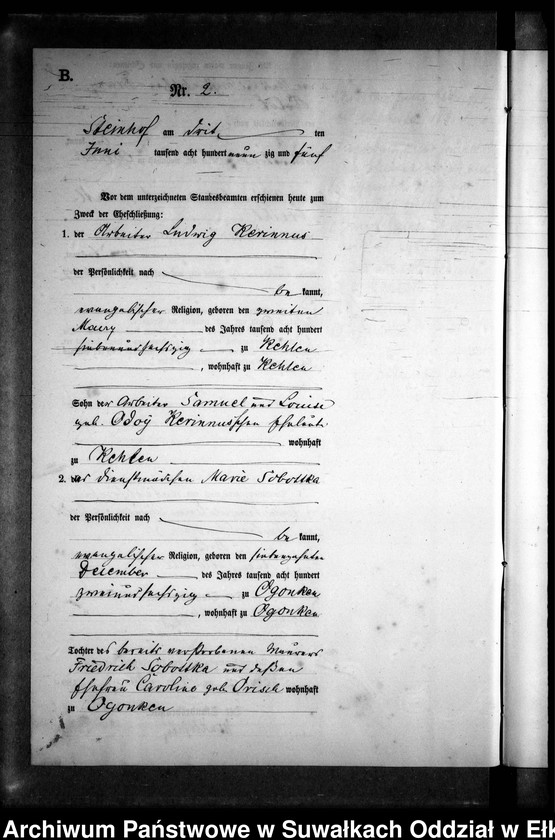 B.
Nr. 2.
Steinhof am drit ten
Juni tausend acht hundert neun zig und fünf
Vor dem unterzeichneten Standesbeamten erschienen heute zum
Zweck der Eheschließung:
1. der Arbeiter Ludwig Kerinnus
der Persönlichkeit nach
be kannt,
evangelischer Religion, geboren den zweiten
März des Jahres tausend acht hundert
siebenundsechszig zu Kehlen
, wohnhaft zu Kehlen
Sohn der Arbeiter Samuel und Louise
geb. Odoy Kerinnusschen Eheleute
wohnhaft
zu Kehlen
2. das Dienstmädchen Marie Sobottka
der Persönlichkeit nach
be kannt,
evangelischer Religion, geboren den siebenzehnten
Dezember des Jahres tausend acht hundert
zweiundsechszig zu Ogonken
, wohnhaft zu Ogonken
Tochter des bereits verstorbenen Maurers
Friedrich Sobottka und deßen
Ehefrau Caroline geb. Orisch wohnhaft
zu Ogonken
Archiwum Państwowe w Suwałkach Oddział w Ełk